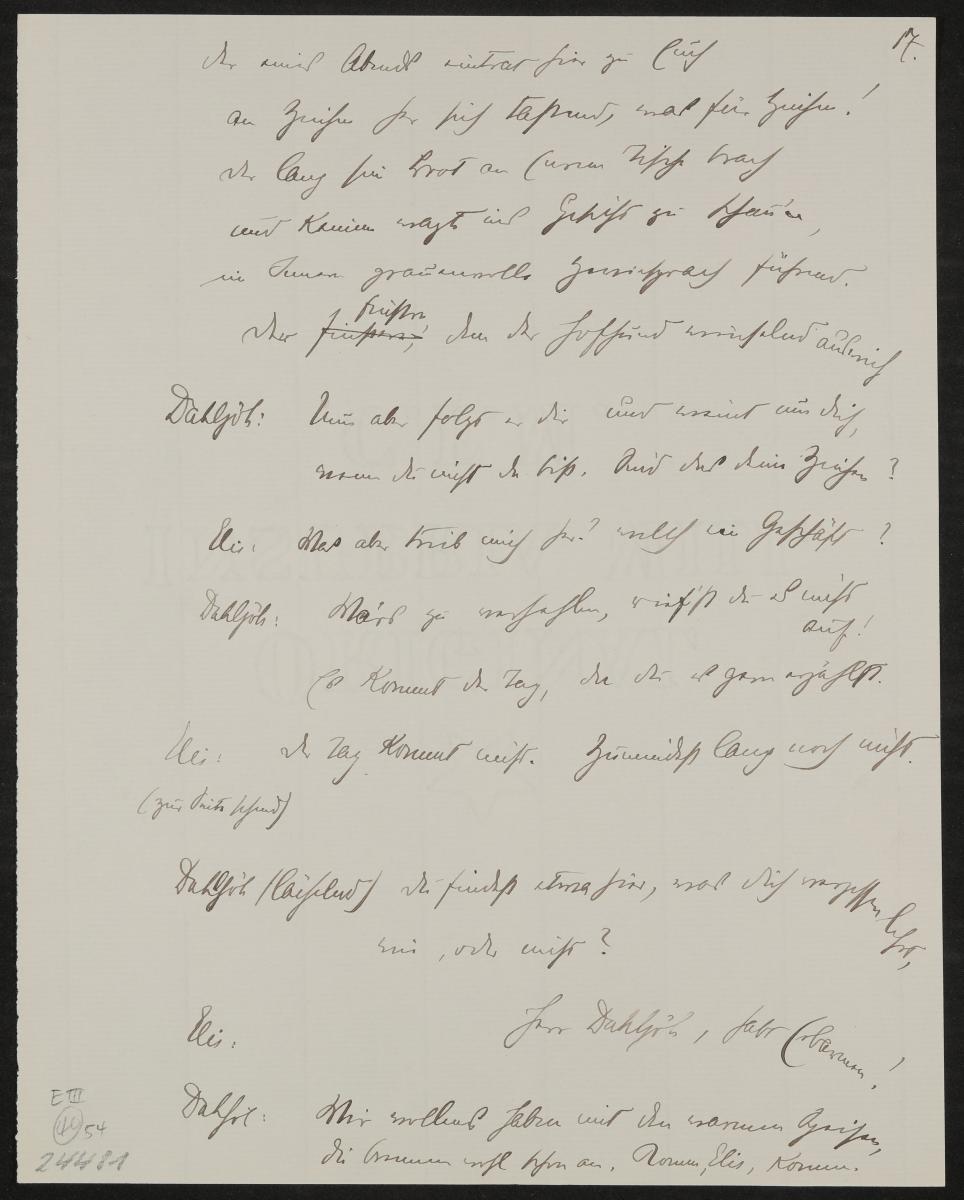 17.
der eines Abends eintrat hier zu Euch
an Zeichen her sich tastend, was für Zeichen!
der lang sein Brot an Eurem Tische brach
und Keinem wagt' ins Gesicht zu schau'n,
im Innern grauenvolle Zwiesprach führend.
Der finstre, dem der Hofhund winselnd auswich
Dahljöh: Nun aber folgt er dir und weint um dich,
wenn du nicht da bist. Sind das keine Zeichen?
Elis: Was aber trieb mich her? welch ein Geschäft?
Dahljöh: Wär's zu erzählen, schöbst du es nicht
auf!
Es Kommt der Tag, da du es gern erzählst.
Elis: Der Tag Kommt nicht. Zumindest lang noch nicht.
(zur Seite sehend)
Dahljöh (lächelnd) du findest etwa hier, was dich vergessen
lehrt,
wie, oder nicht?
Elis: Herr Dahljöh, habt Erbarmen!
Dahljöh: Wir wollens haben mit den warmen Speisen,
die brennen wohl schon an. Komm, Elis, Komm.
E III
54
24481